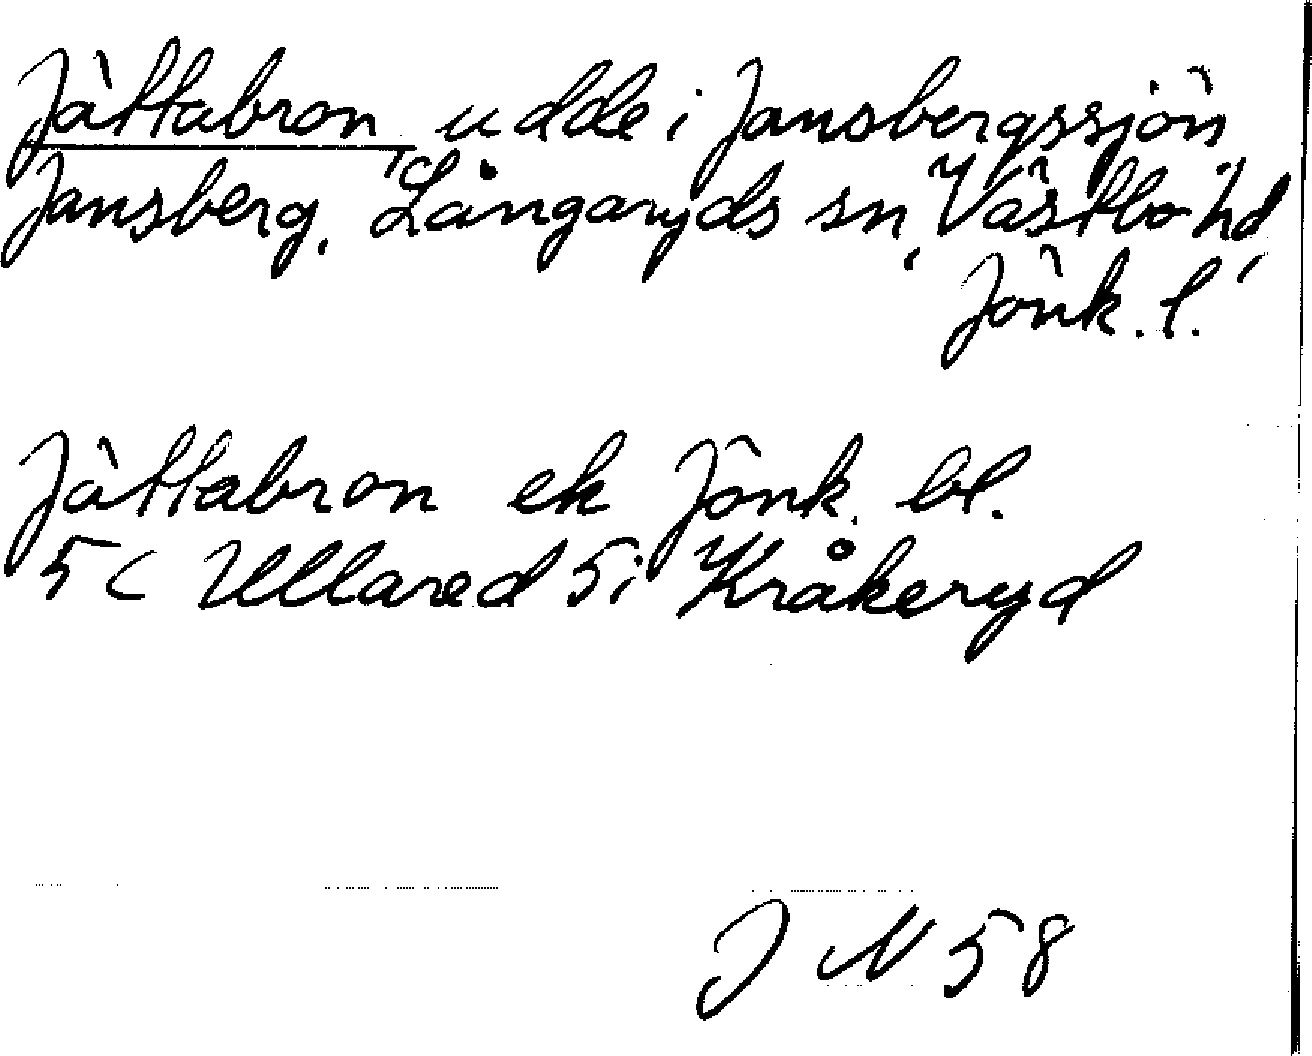 Jättabron udde i Jansbergssjön
Jansberg, Långaryds sn, Västbo hd,
Jönk. l.
Jättabron ek Jönk. bl.
5C Ullared 5i Kråkeryd
J N 58